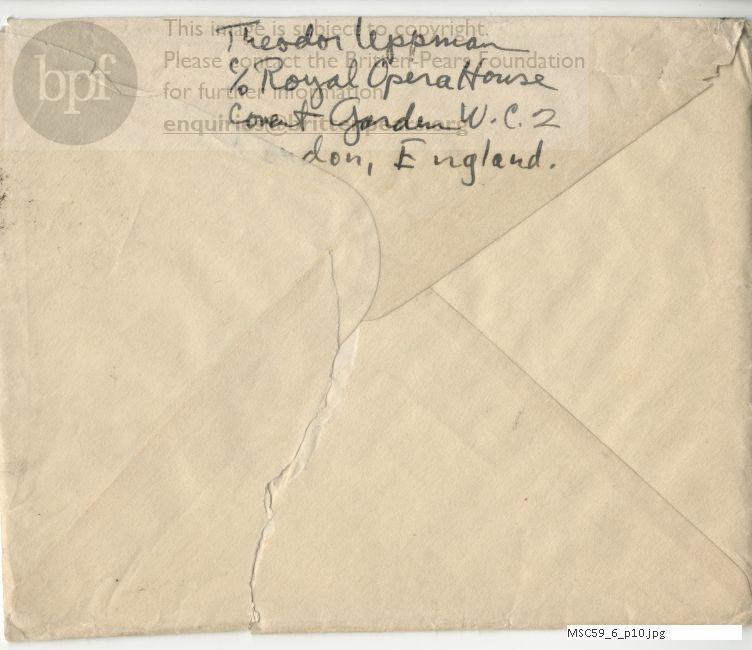 This image is subject to copyright.
Please contact the Britten-Pears Foundation
for further information
bpf
Theodor Uppman
c/o Royal Opera House
Covent Garden W.C. 2
London, England.
MSC59_6_p10.jpg